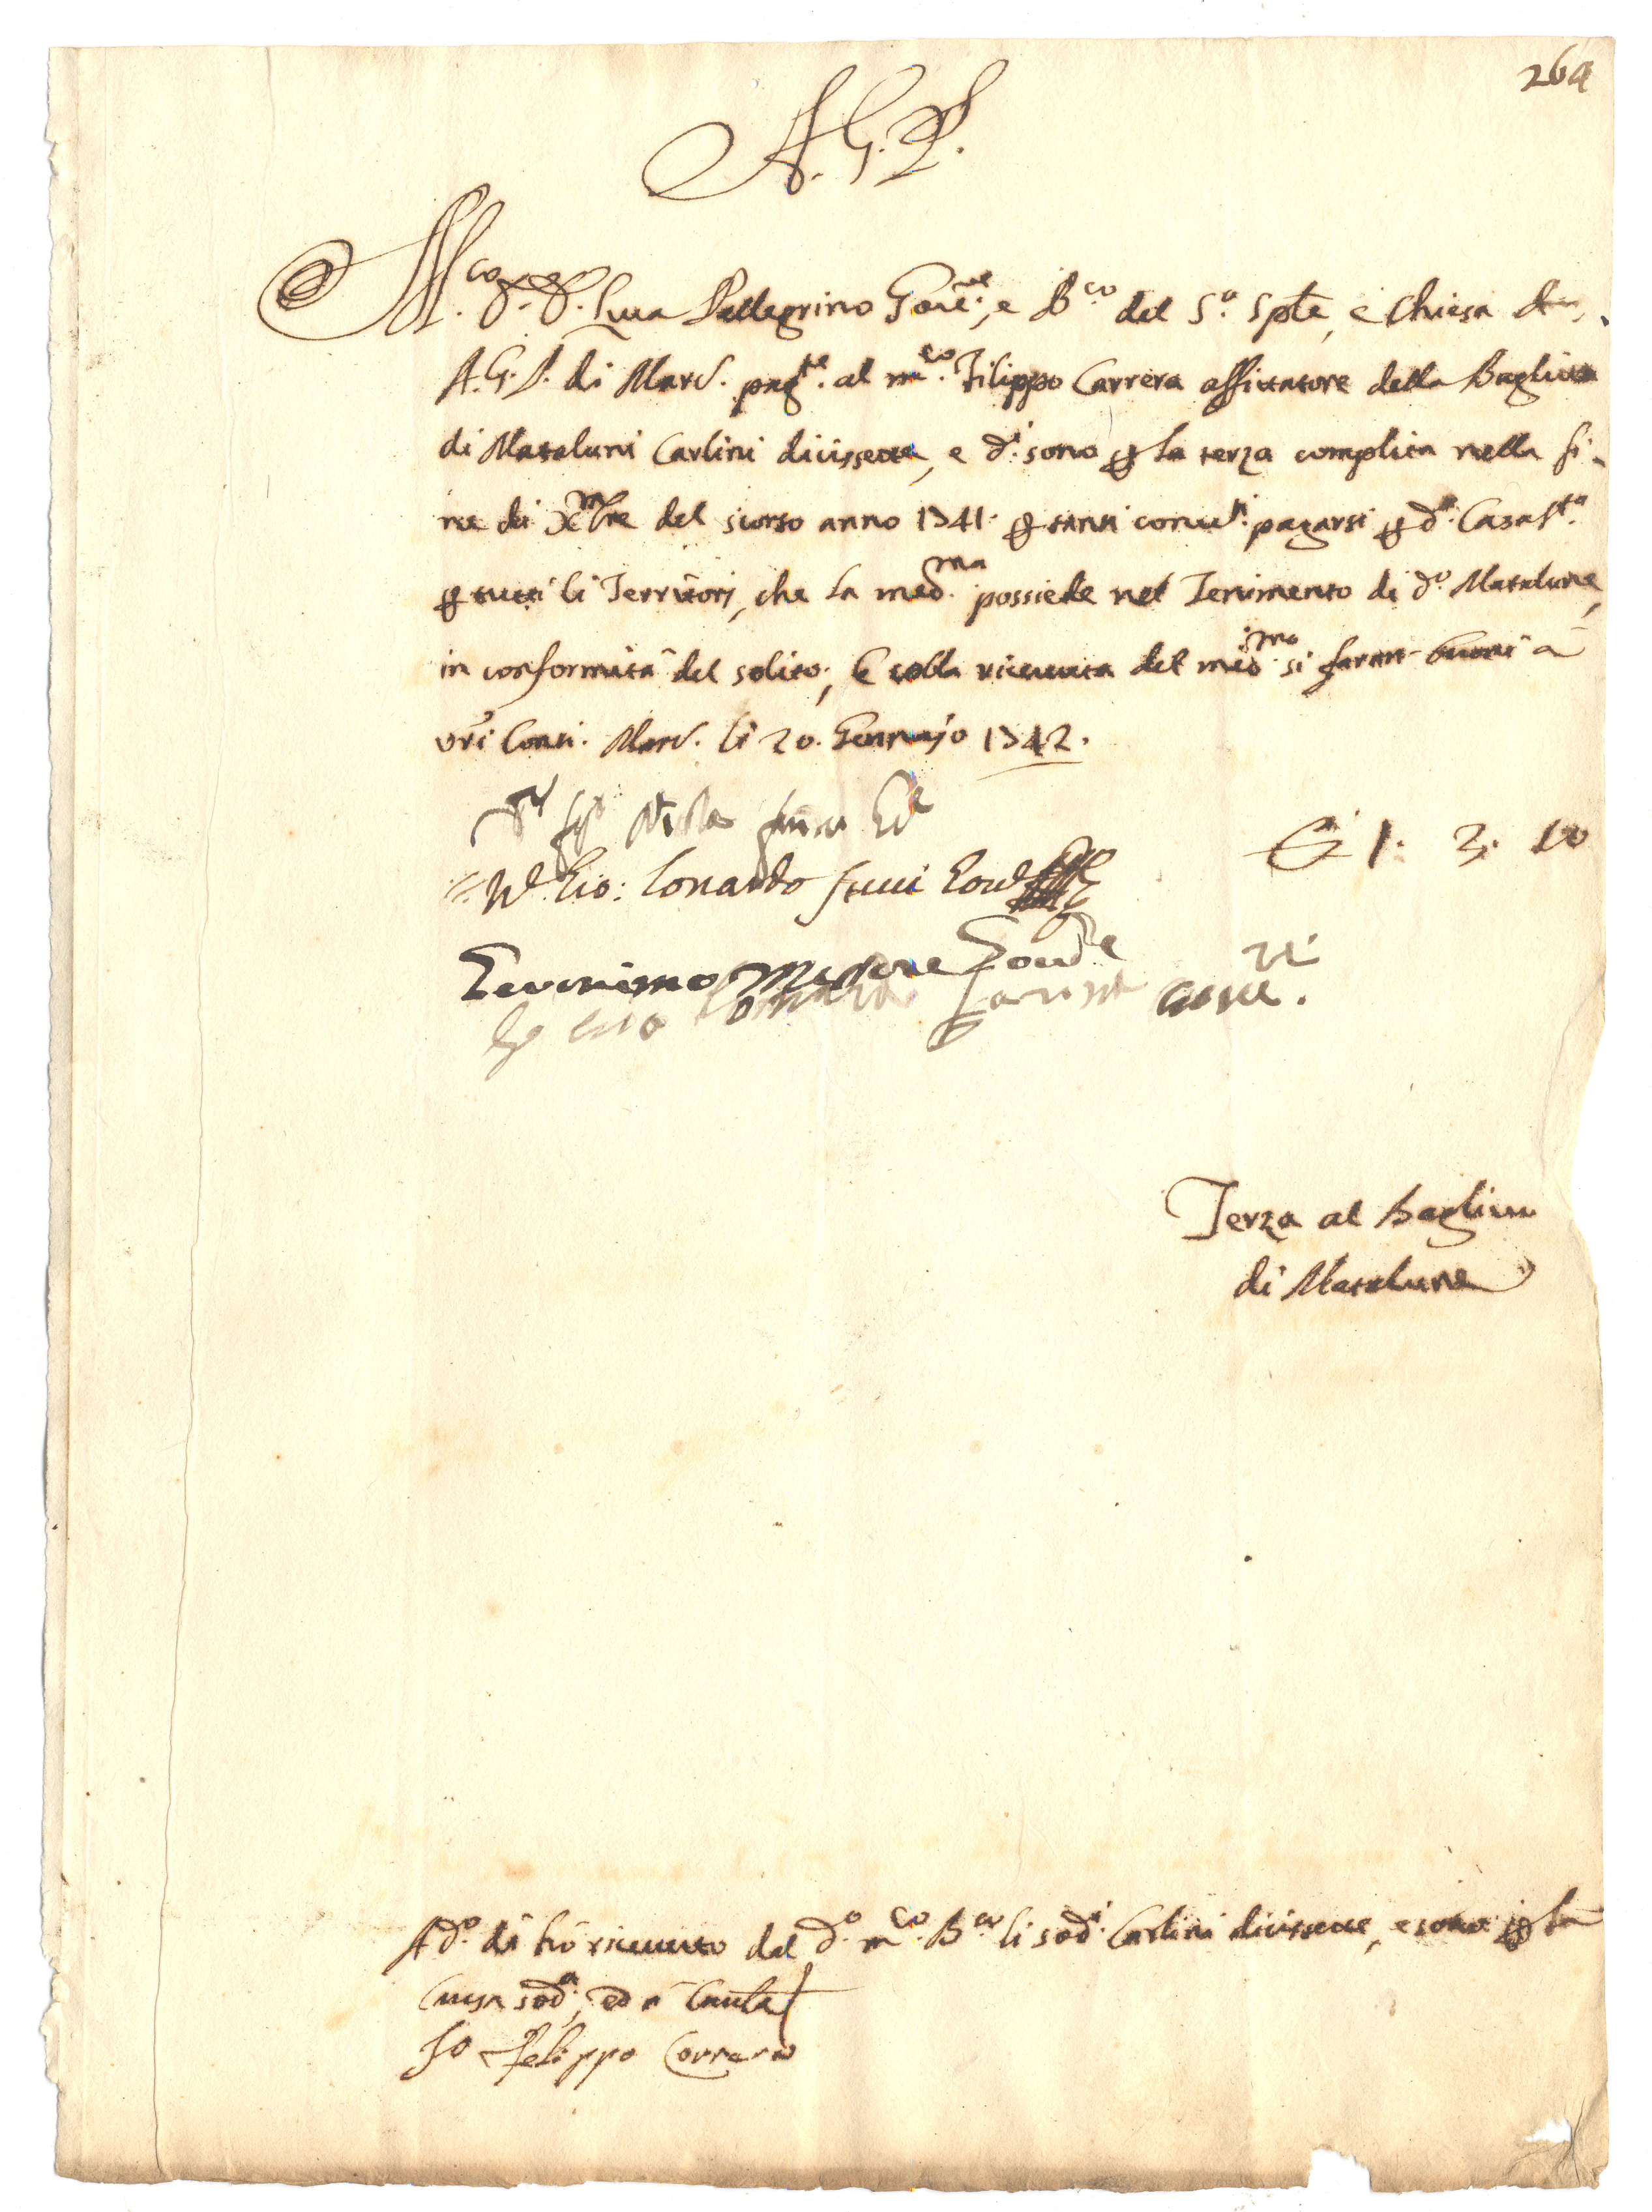 264
A. G. P.
M.co Sr. D. Luca Pellegrino Gov.e, e B.co del S.o Sple, e Chiesa
A. G. P. di Marc. pag.te al m.co Filippo Carrera affittatore della Bagliva
di Mataluni Carlini dicissette, e d.i sono p la terza complita nella fi-
ne di Xmbre del scorso anno 1741. p tanti pagarsi p d.a Casa s.ta
p tutti li Territorj, che la med.ma possiede nel Tenimento di d.o Matalune,
in conformità del solito; E colla ricevuta del med.smo si faran buoni a
vri Conti. Marc. li 20. Gennajo 1742.
1. 3. 10
Gio: Lonardo
Geronimo Gov.re
Terza al Baglivo
di Matalune
A d.o di hò ricevuto dal d.o m.co B.co li sod.i Carlini dicissette, e sono p la
Causa sod.a, ed a Cautela
Io Felippo Correra